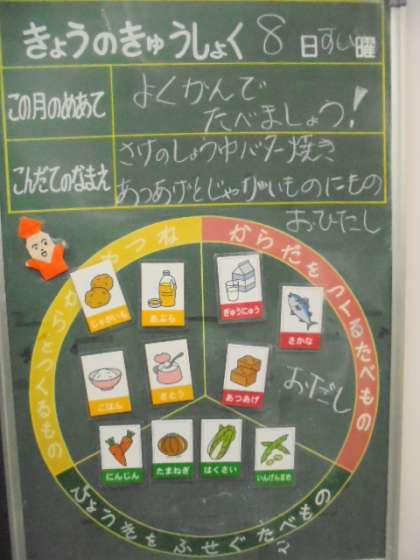 きょうのきゅうしょく 8日すい曜
この月のめあて
よくかんで
たべましょう!
こんだてのなまえ
さけのしょうゆバター焼き
あつあげとじゃがいものにもの
おひたし
ねつやちからをつくるもの
からだをつくるたべもの
じゃがいも
あぶら
ぎゅうにゅう
さかな
ごはん
さとう
あつあげ
おだし
にんじん
たまねぎ
はくさい
いんげんまめ
びょうきをふせぐたべもの